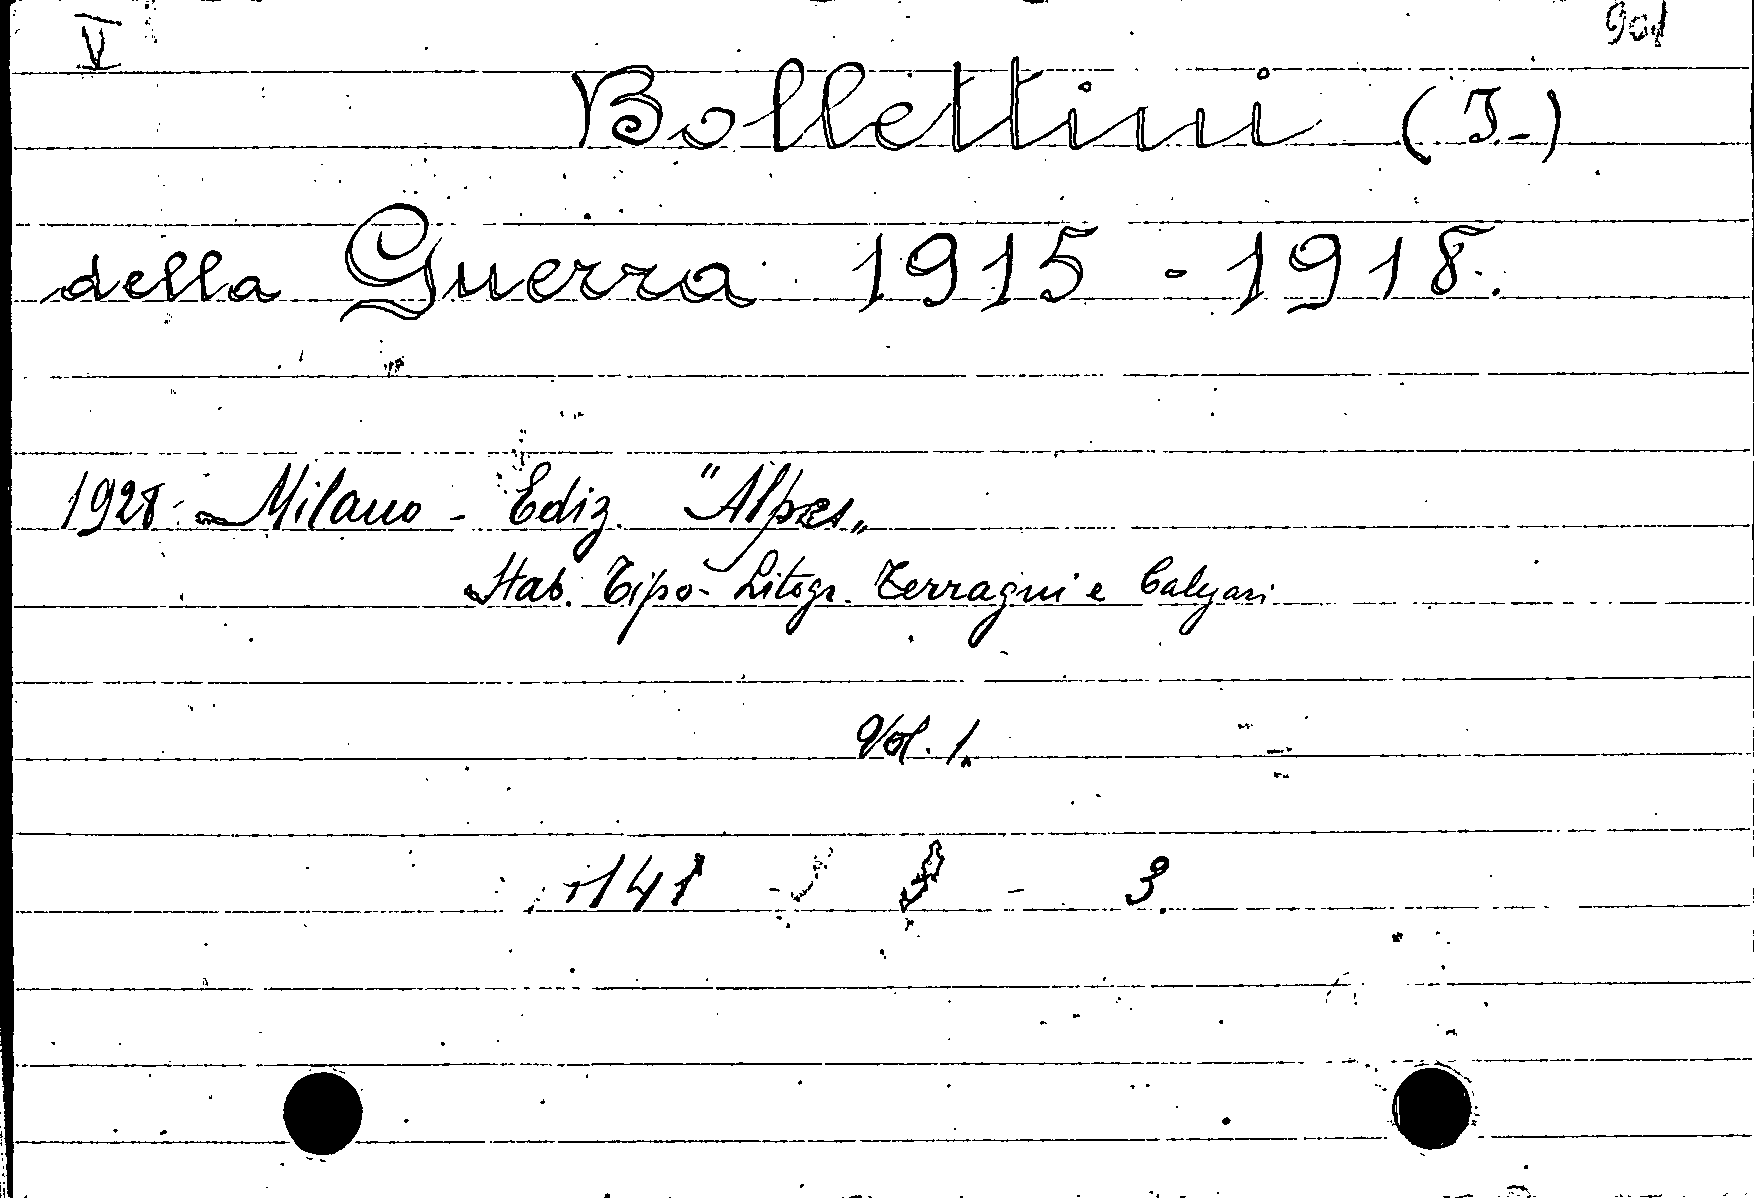 V 901
Bollettini (I.-)
della Guerra 1915 - 1918.
1928 - Milano - Ediz. "Alpes„
Stab. Tipo- Litogr. Terragni e Calegari
Vol. 1.
141 - 3.